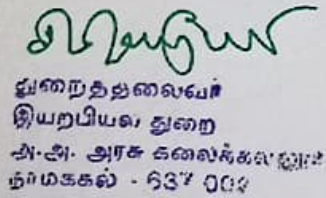 துறைத்தலைவர்
இயற்பியல் துறை
அ.அ. அரசு கலைக்கல்லூரி
நாமக்கல் - 637 002